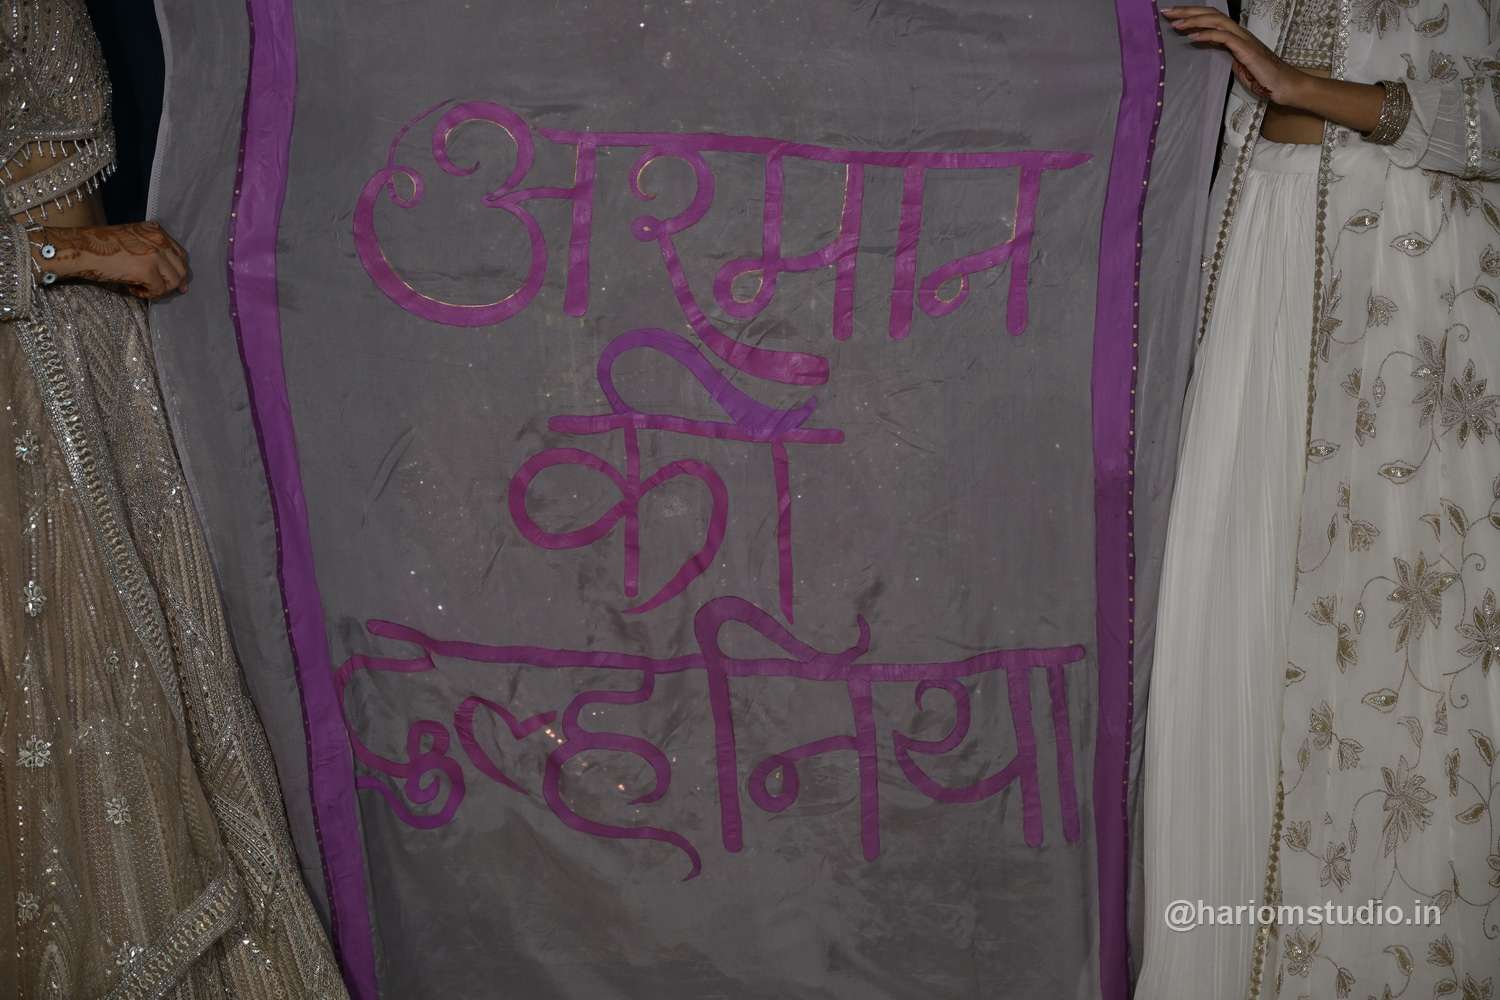 अरमान
की
दुल्हनिया
@hariomstudio.in